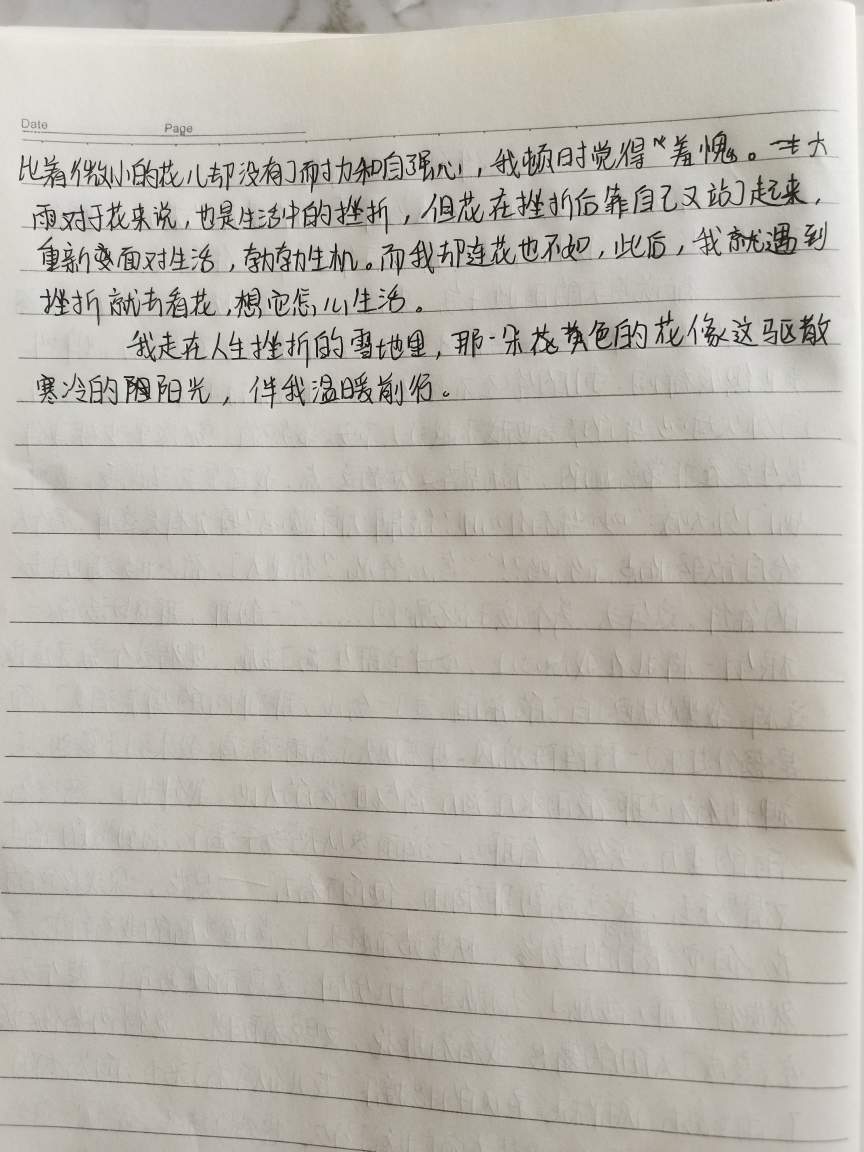 Date Page
比着微小的花儿却没有了耐力和自强心，我顿时觉得“羞愧。大
雨对于花来说，也是生活中的挫折，但花在挫折后靠自己又站了起来，
重新变面对生活，勃勃生机。而我却连花也不如，此后，我就遇到
挫折就去看花，想它怎么生活。
我走在人生挫折的雪地里，那一朵花黄色的花像这驱散
寒冷的阳光，伴我温暖前行。